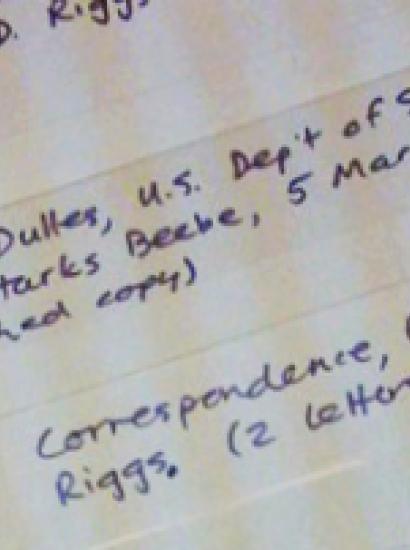 D. Riggs
Dulles, U.S. Dep't of S
tarks Beebe, 5 Mar
hed copy)
Correspondence,
Riggs. (2 letter